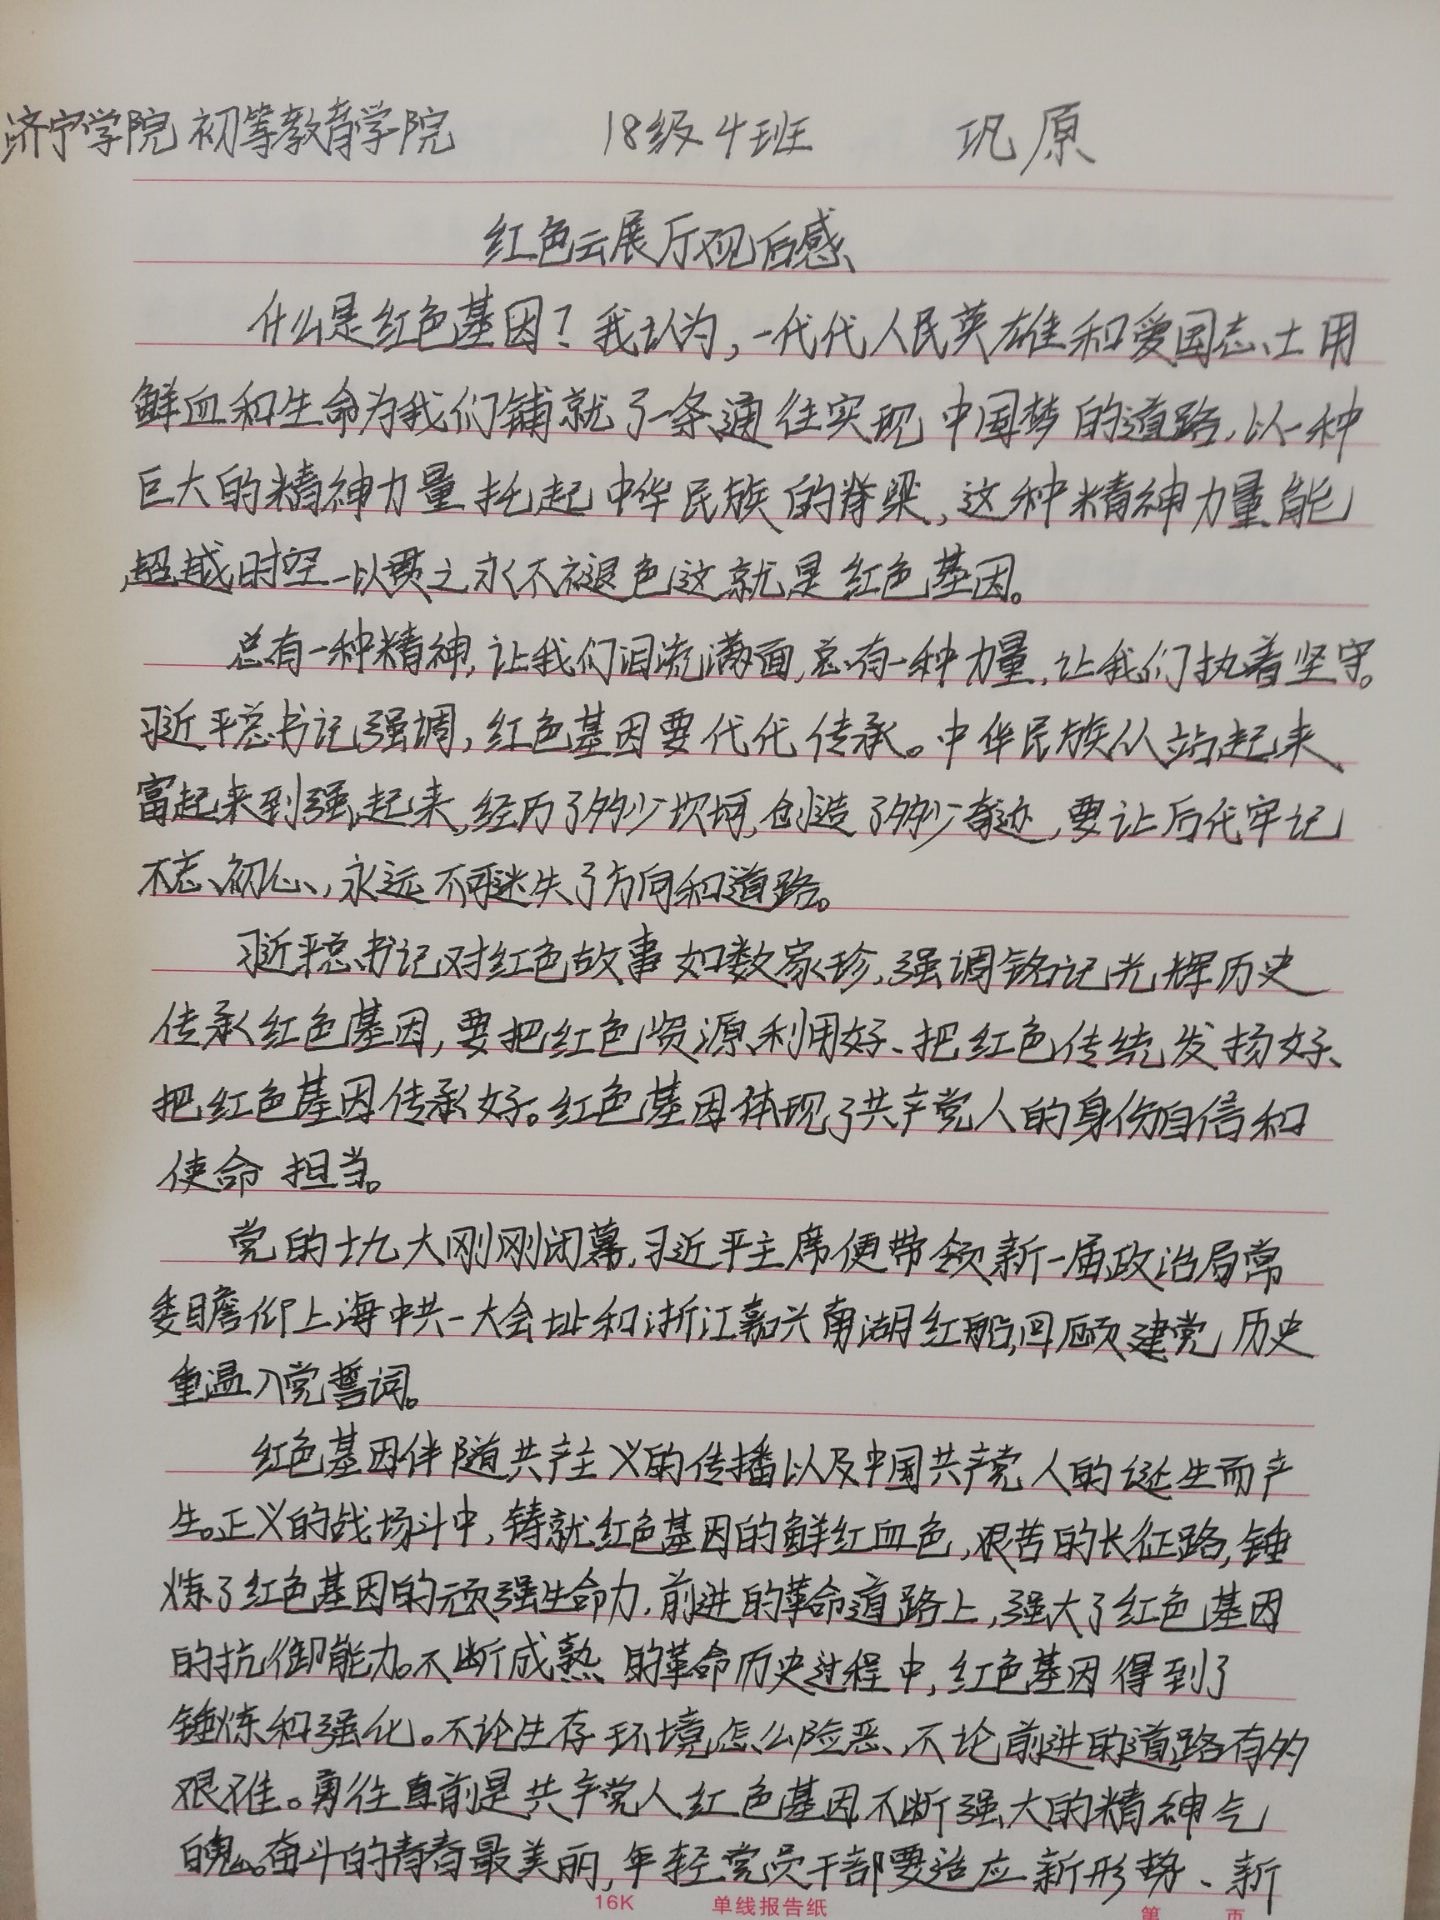 济宁学院 初等教育学院 18级4班 巩原
红色云展厅观后感
什么是红色基因？我认为，一代代人民英雄和爱国志士用
鲜血和生命为我们铺就了一条通往实现中国梦的道路，以一种
巨大的精神力量托起中华民族的脊梁，这种精神力量能
超越时空一以贯之永不褪色这就是红色基因。
总有一种精神，让我们泪流满面，总有一种力量，让我们执着坚守。
习近平总书记强调，红色基因要代代传承。中华民族从站起来、
富起来到强起来，经历了多少坎坷，创造了多少奇迹，要让后代牢记
不忘初心，永远不可迷失了方向和道路。
习近平总书记对红色故事如数家珍，强调铭记光辉历史
传承红色基因，要把红色资源利用好、把红色传统发扬好、
把红色基因传承好。红色基因体现了共产党人的身份自信和
使命担当。
党的十九大刚刚闭幕，习近平主席便带领新一届政治局常
委瞻仰上海中共一大会址和浙江嘉兴南湖红船，回顾建党历史
重温入党誓词。
红色基因伴随共产主义的传播以及中国共产党人的诞生而产
生。正义的战场斗中，铸就红色基因的鲜红血色，艰苦的长征路，锤
炼了红色基因的顽强生命力，前进的革命道路上，强大了红色基因
的抗御能力。不断成熟的革命历史过程中，红色基因得到了
锤炼和强化。不论生存环境怎么险恶、不论前进的道路有多
艰难。勇往直前是共产党人红色基因不断强大的精神气
魄。奋斗的青春最美丽，年轻党员干部要适应新形势、新
16K 单线报告纸 第 页